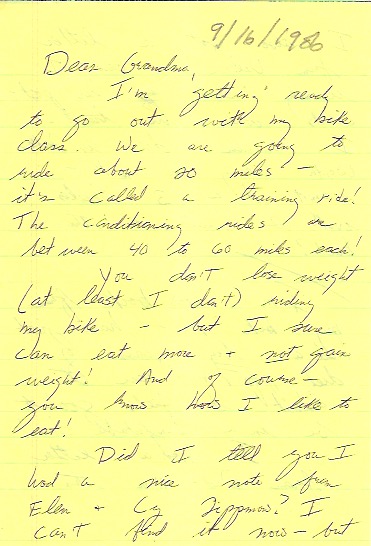 9/16/1986
Dear Grandma,
I'm getting ready
to go out with my bike
class. We are going to
ride about 20 miles —
it's called a training ride!
The conditioning rides are
between 40 to 60 miles each!
You don't lose weight
(at least I don't) riding
my bike - but I sure
can eat more + not gain
weight! And of course -
you know how I like to
eat!
Did I tell you I
had a nice note from
Ellen + Cy? I
can't find it now - but